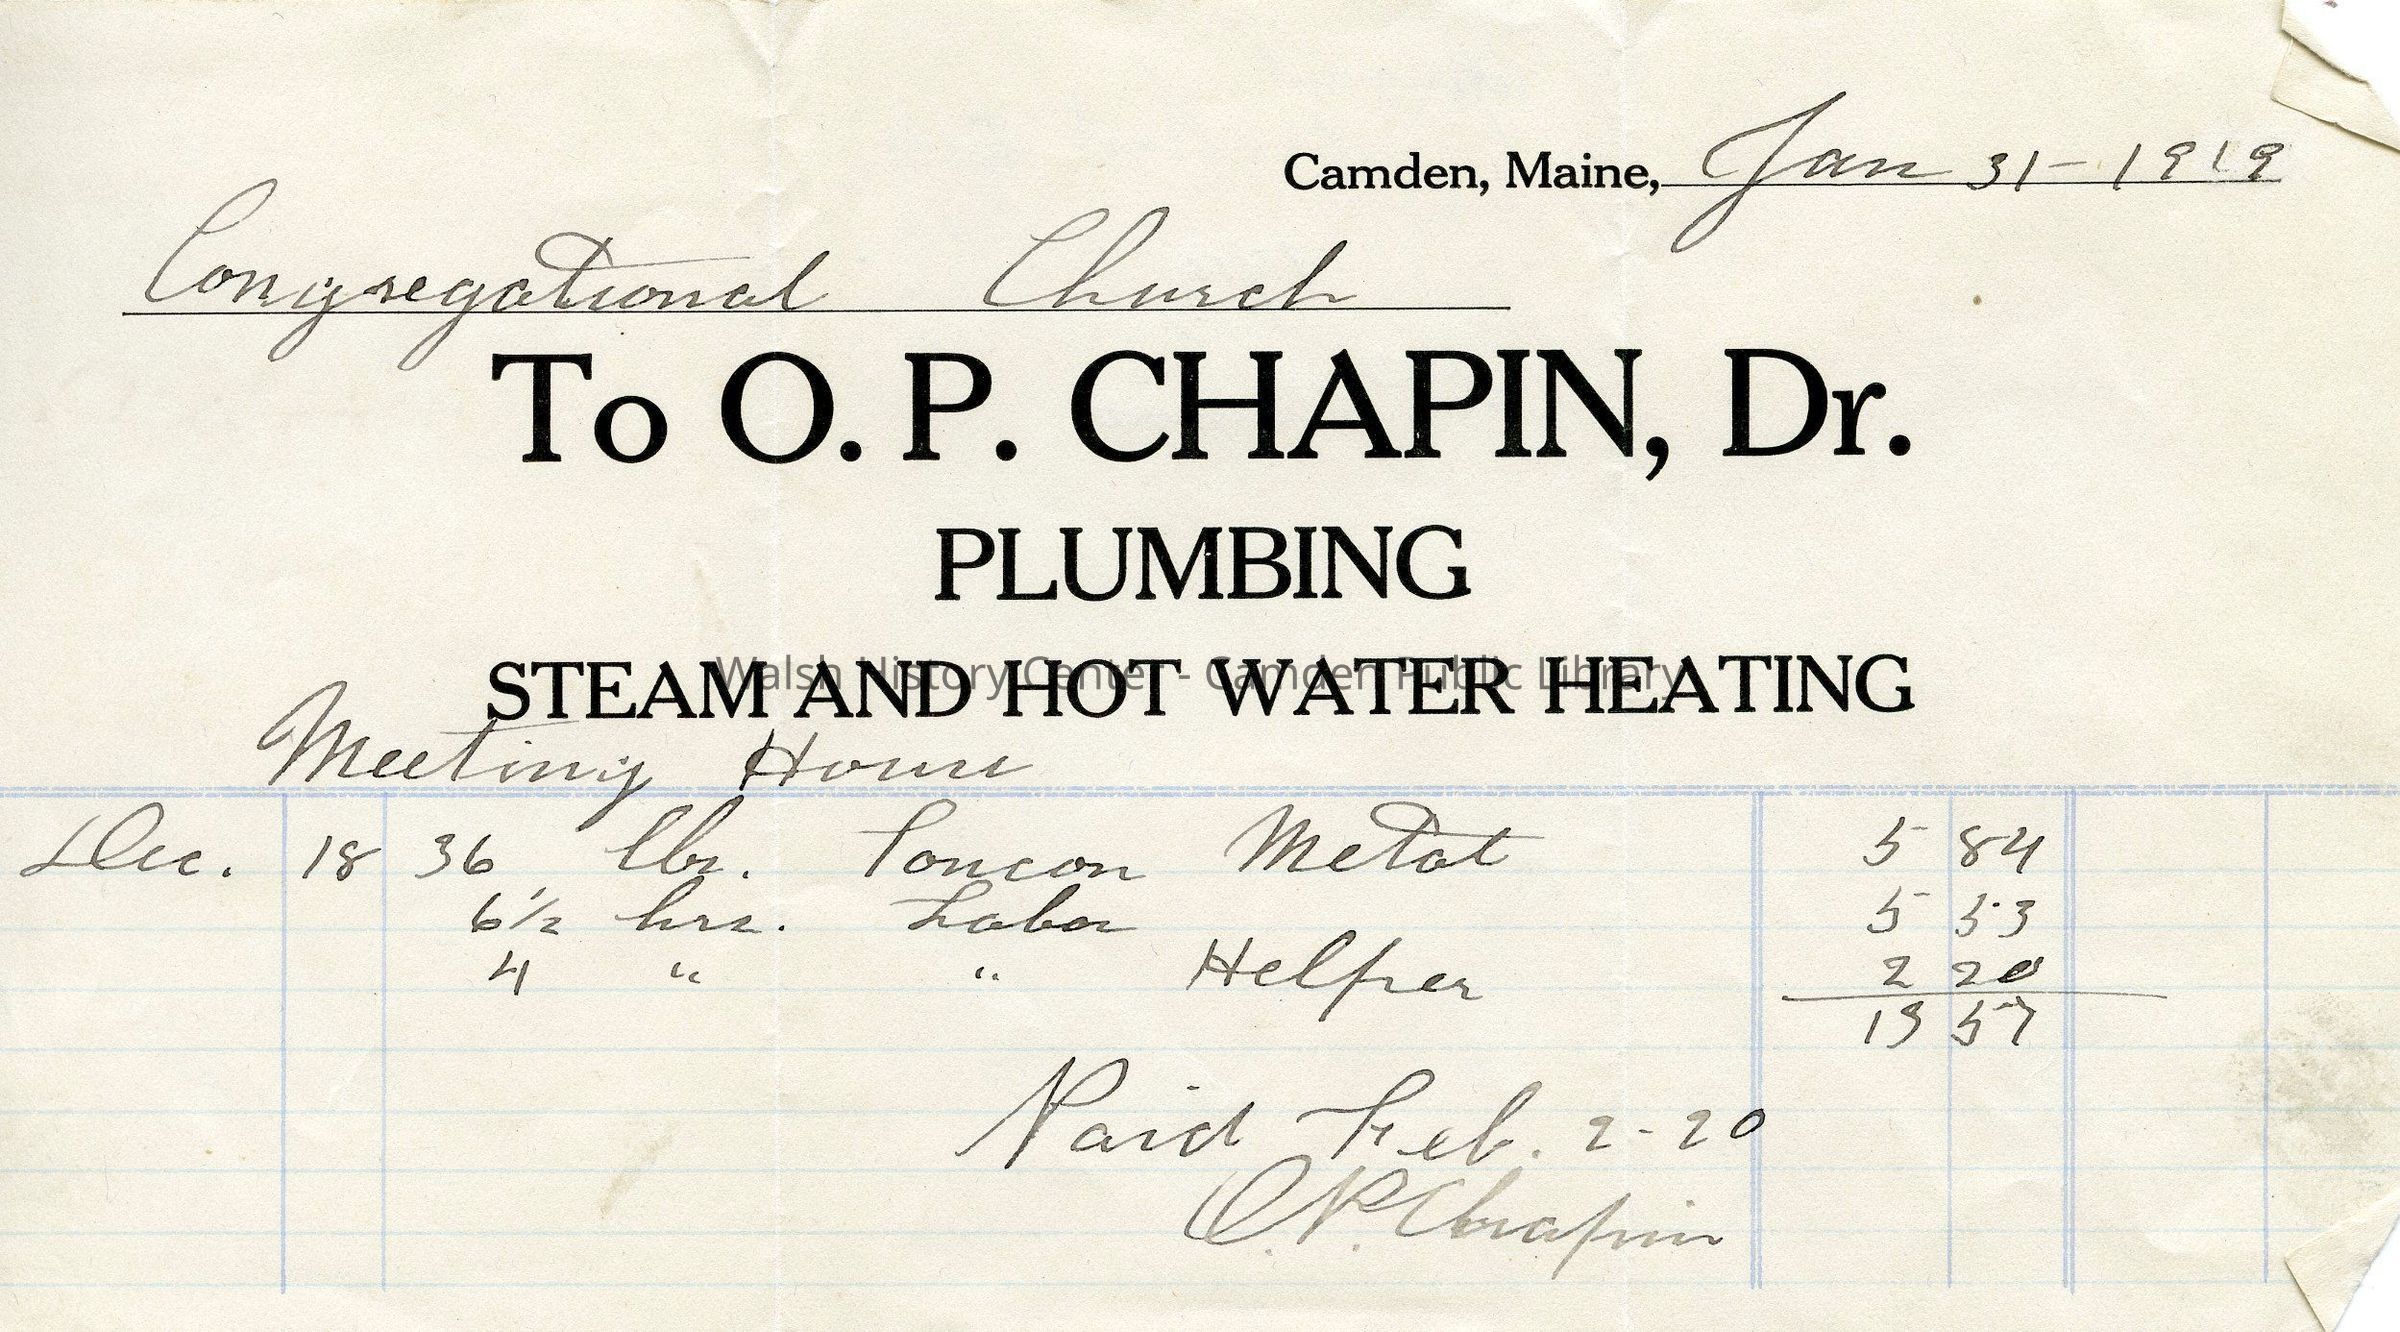 Camden, Maine, Jan 31-1919
Congregational Church
To O. P. CHAPIN, Dr.
PLUMBING
STEAM AND HOT WATER HEATING
Walsh History Center - Camden Public Library
Meeting House
Dec. 18 36 lbs. Toncon Metal 5 84
6 1/2 hrs. Labor 5 53
4 " " Helper 2 20
13 57
Paid Feb. 2-20
O.P. Chapin